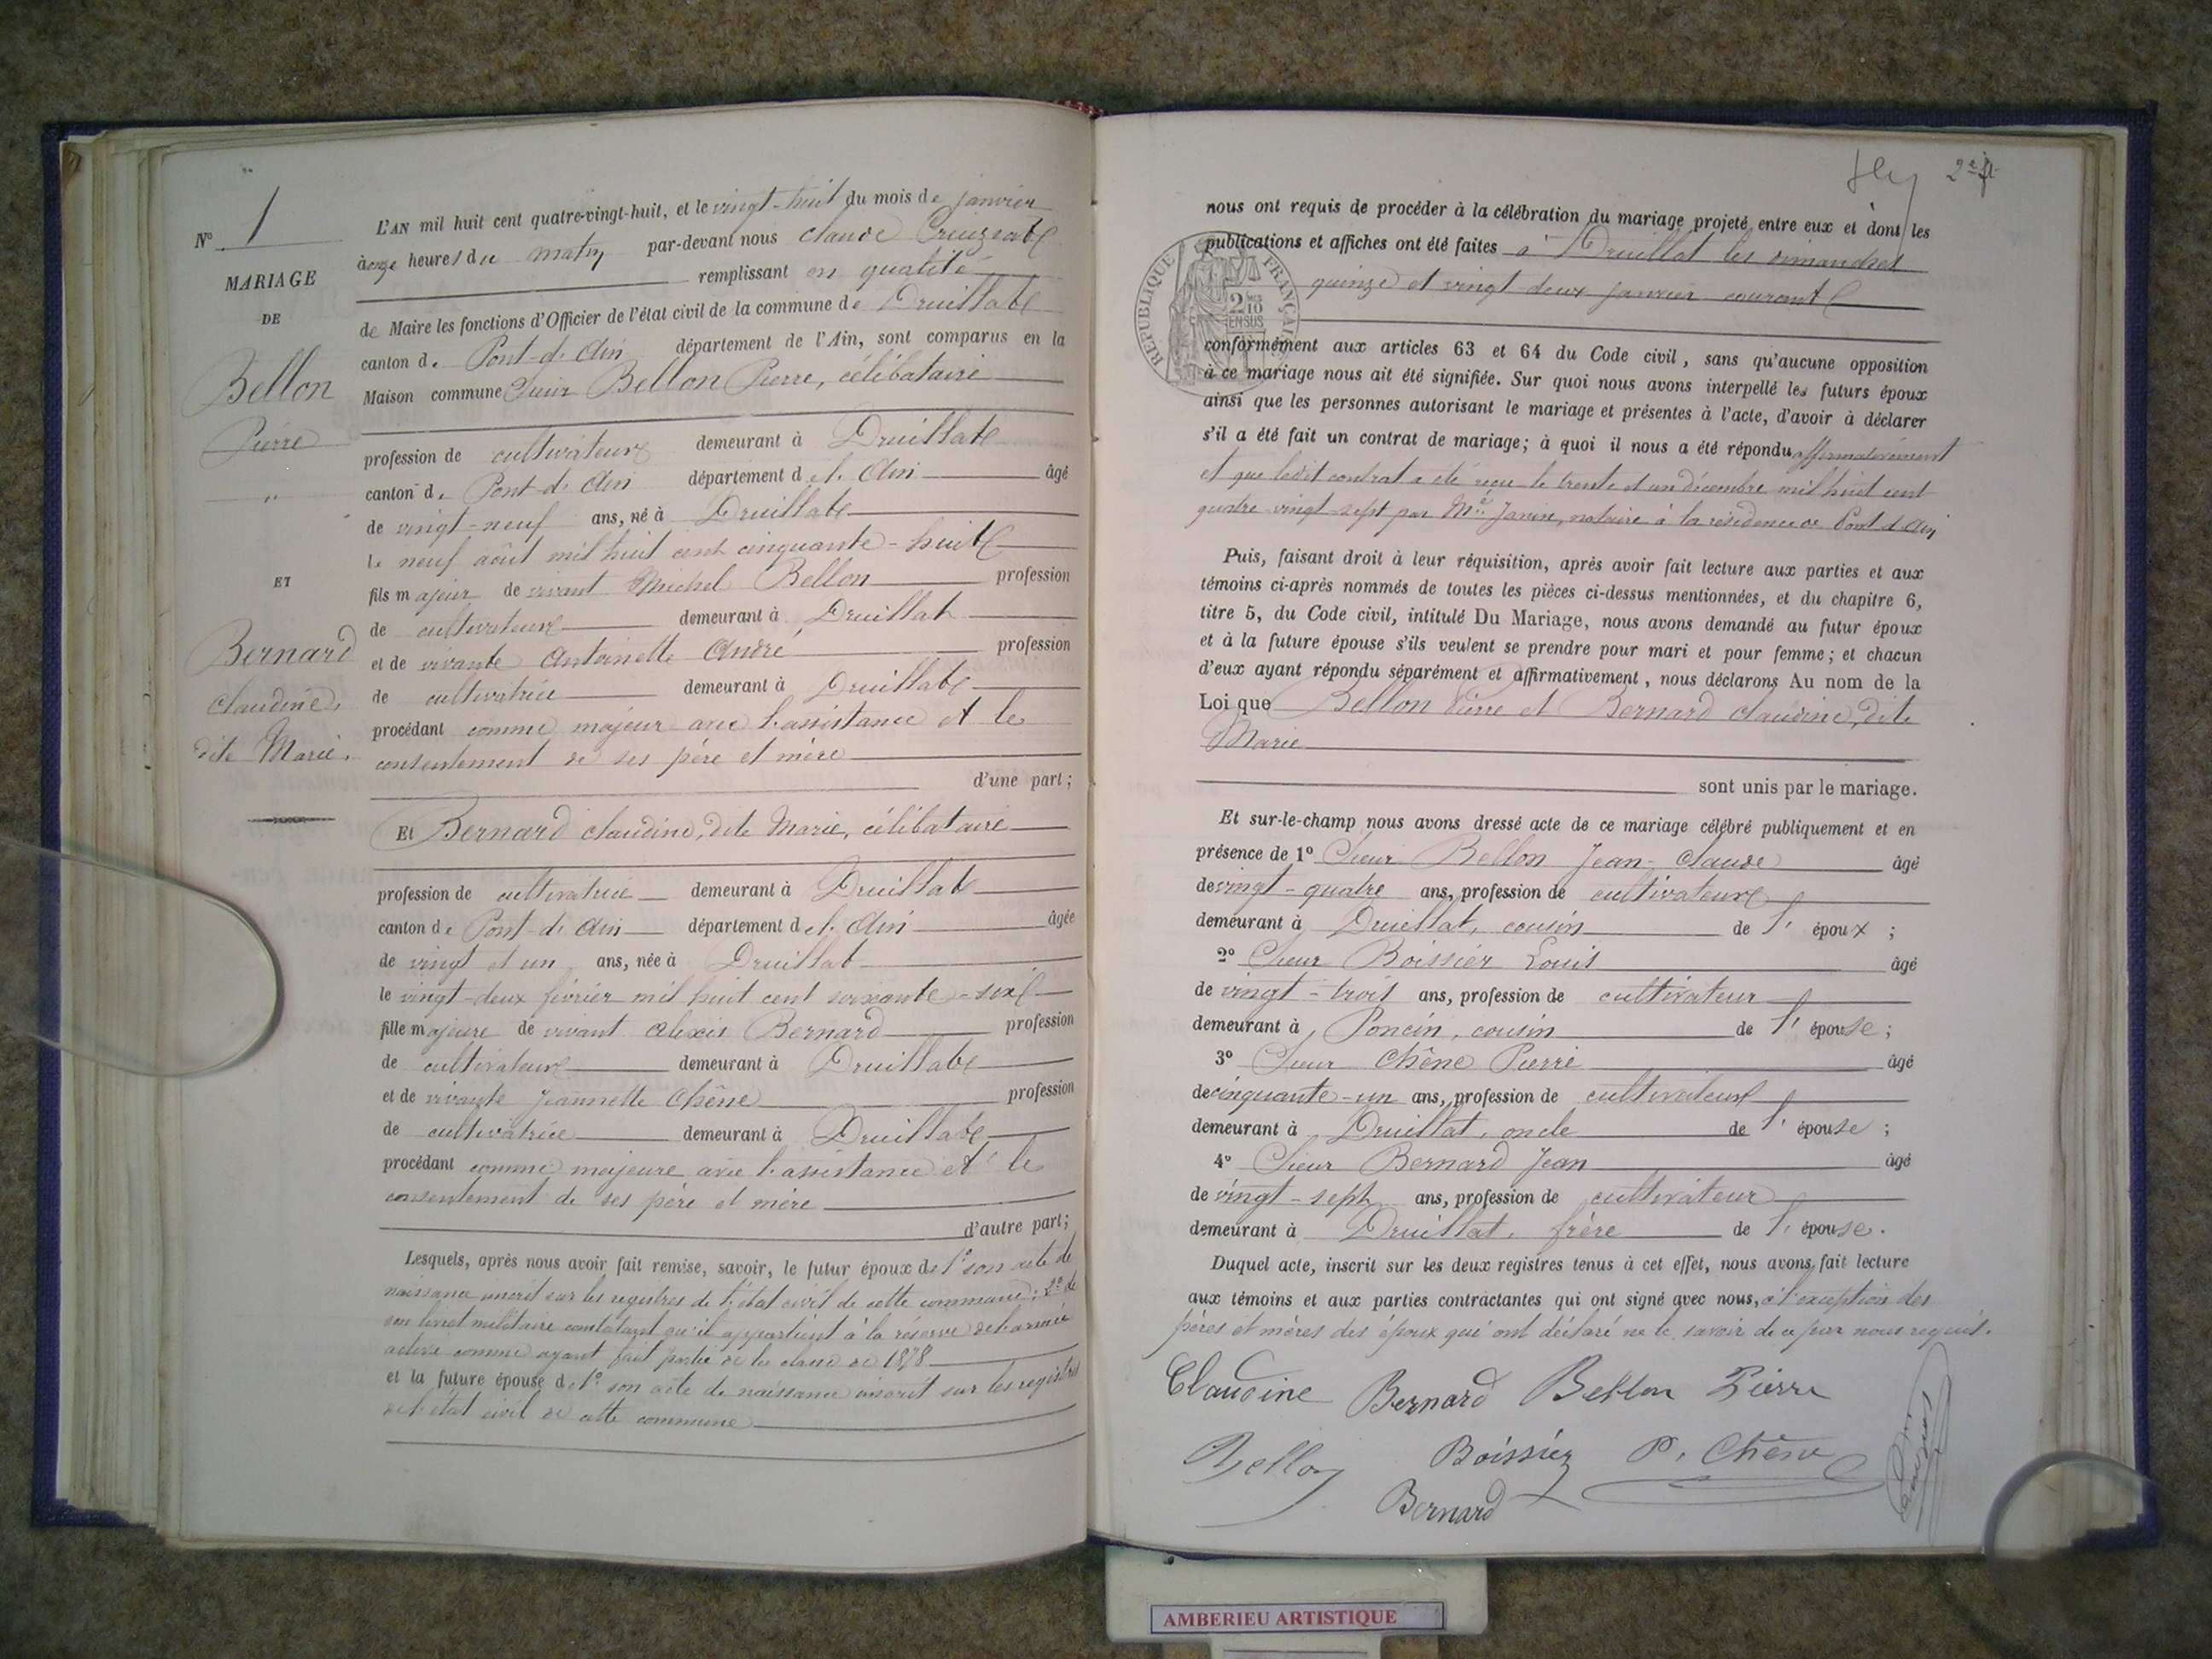 N° 1
MARIAGE
DE
Bellon
Pierre
"
ET
Bernard
Claudine,
dite Marie.
L'AN mil huit cent quatre-vingt-huit, et le vingt-huit du mois de janvier
à onze heures du matin par-devant nous Claude
remplissant en qualité
de Maire les fonctions d'Officier de l'état civil de la commune de Druillat
canton de Pont-d'Ain département de l'Ain, sont comparus en la
Maison commune Sieur Bellon Pierre, célibataire
profession de cultivateur demeurant à Druillat
canton de Pont-d'Ain département de l'Ain âgé
de vingt-neuf ans, né à Druillat
le neuf août mil huit cent cinquante-huit
fils majeur de vivant Michel Bellon profession
de cultivateur demeurant à Druillat
et de vivante Antoinette André profession
de cultivatrice demeurant à Druillat
procédant comme majeur avec l'assistance et le
consentement de ses père et mère
d'une part;
Et Bernard Claudine, dite Marie, célibataire
profession de cultivatrice demeurant à Druillat
canton de Pont-d'Ain département de l'Ain âgée
de vingt et un ans, née à Druillat
le vingt-deux février mil huit cent soixante-six
fille majeure de vivant Alexis Bernard profession
de cultivateur demeurant à Druillat
et de vivante Jeannette Chêne profession
de cultivatrice demeurant à Druillat
procédant comme majeure avec l'assistance et le
consentement de ses père et mère
d'autre part;
Lesquels, après nous avoir fait remise, savoir, le futur époux de 1° son acte de
naissance inscrit sur les registres de l'état civil de cette commune; 2° de
son livret militaire constatant qu'il appartient à la réserve de l'armée
active comme ayant fait partie de la classe de 1878
et la future épouse de 1° son acte de naissance inscrit sur les registres
de l'état civil de cette commune
2e f
nous ont requis de procéder à la célébration du mariage projeté entre eux et dont les
publications et affiches ont été faites à Druillat les dimanches
quinze et vingt-deux janvier courant
RÉPUBLIQUE FRANÇAISE
2 10 EN SUS
conformément aux articles 63 et 64 du Code civil, sans qu'aucune opposition
à ce mariage nous ait été signifiée. Sur quoi nous avons interpellé les futurs époux
ainsi que les personnes autorisant le mariage et présentes à l'acte, d'avoir à déclarer
s'il a été fait un contrat de mariage; à quoi il nous a été répondu affirmativement
et que ledit contrat a été reçu le trente et un décembre mil huit cent
quatre-vingt-sept par Me notaire à la résidence de Pont d'Ain
Puis, faisant droit à leur réquisition, après avoir fait lecture aux parties et aux
témoins ci-après nommés de toutes les pièces ci-dessus mentionnées, et du chapitre 6,
titre 5, du Code civil, intitulé Du Mariage, nous avons demandé au futur époux
et à la future épouse s'ils veulent se prendre pour mari et pour femme; et chacun
d'eux ayant répondu séparément et affirmativement, nous déclarons Au nom de la
Loi que Bellon Pierre et Bernard Claudine, dite
Marie
sont unis par le mariage.
Et sur-le-champ nous avons dressé acte de ce mariage célébré publiquement et en
présence de 1° Sieur Bellon Jean-Claude âgé
de vingt-quatre ans, profession de cultivateur
demeurant à Druillat, cousin de l'époux;
2° Sieur Boissier Louis âgé
de vingt-trois ans, profession de cultivateur
demeurant à Poncin, cousin de l'épouse;
3° Sieur Chêne Pierre âgé
de cinquante-un ans, profession de cultivateur
demeurant à Druillat, oncle de l'épouse;
4° Sieur Bernard Jean âgé
de vingt-sept ans, profession de cultivateur
demeurant à Druillat, frère de l'épouse.
Duquel acte, inscrit sur les deux registres tenus à cet effet, nous avons fait lecture
aux témoins et aux parties contractantes qui ont signé avec nous, à l'exception des
pères et mères des époux qui ont déclaré ne le savoir de ce par nous requis.
Claudine Bernard Bellon Pierre
Bellon Boissier P. Chêne
Bernard
AMBERIEU ARTISTIQUE